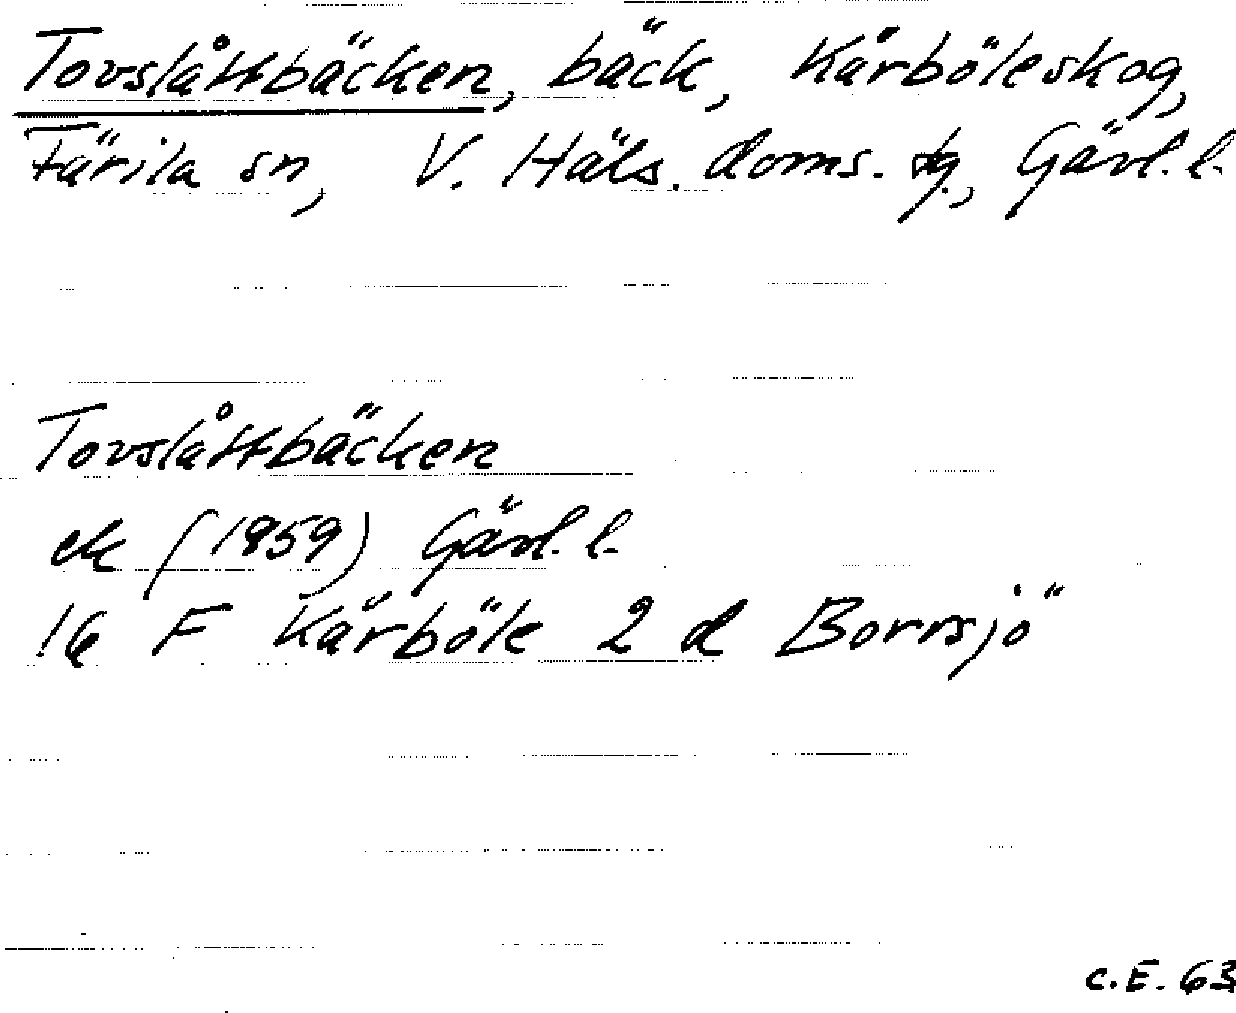 Tovslåttbäcken, bäck, Kårböleskog,
Färila sn, V. Häls. doms. tg., Gävl. l.
Tovslåttbäcken
ek (1959) Gävl. l.
16 F Kårböle 2 d Borrsjö
C.E. 63